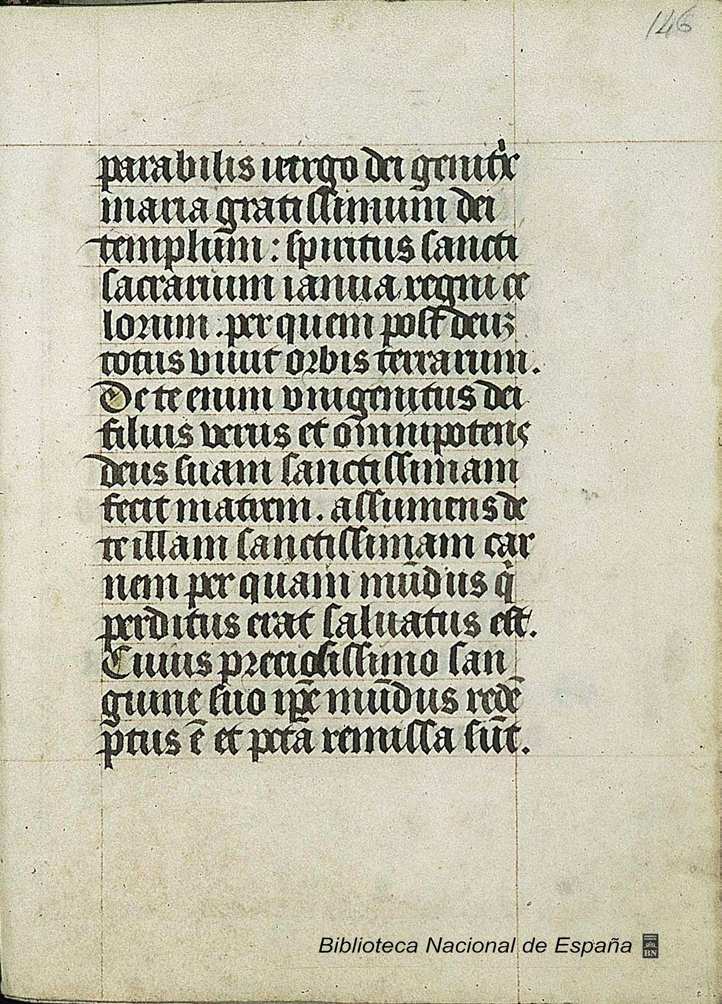 146
parabilis uirgo dei genitrix
maria gratissimum dei
templum : spiritus sancti
sacrarium ianua regni ce
lorum . per quem post deuz
totus viuit orbis terrarum.
De te enim vnigenitus dei
filius verus et omnipotens
deus suam sanctissimam
fecit matrem . assumens de
te illam sanctissimam car
nem per quam mūdus qⁱ
perditus erat saluatus est.
Cuius preciosissimo san
guine suo ip̄e mūdus redē
ptus ē et pctā remissa sūt.
Biblioteca Nacional de España
BN